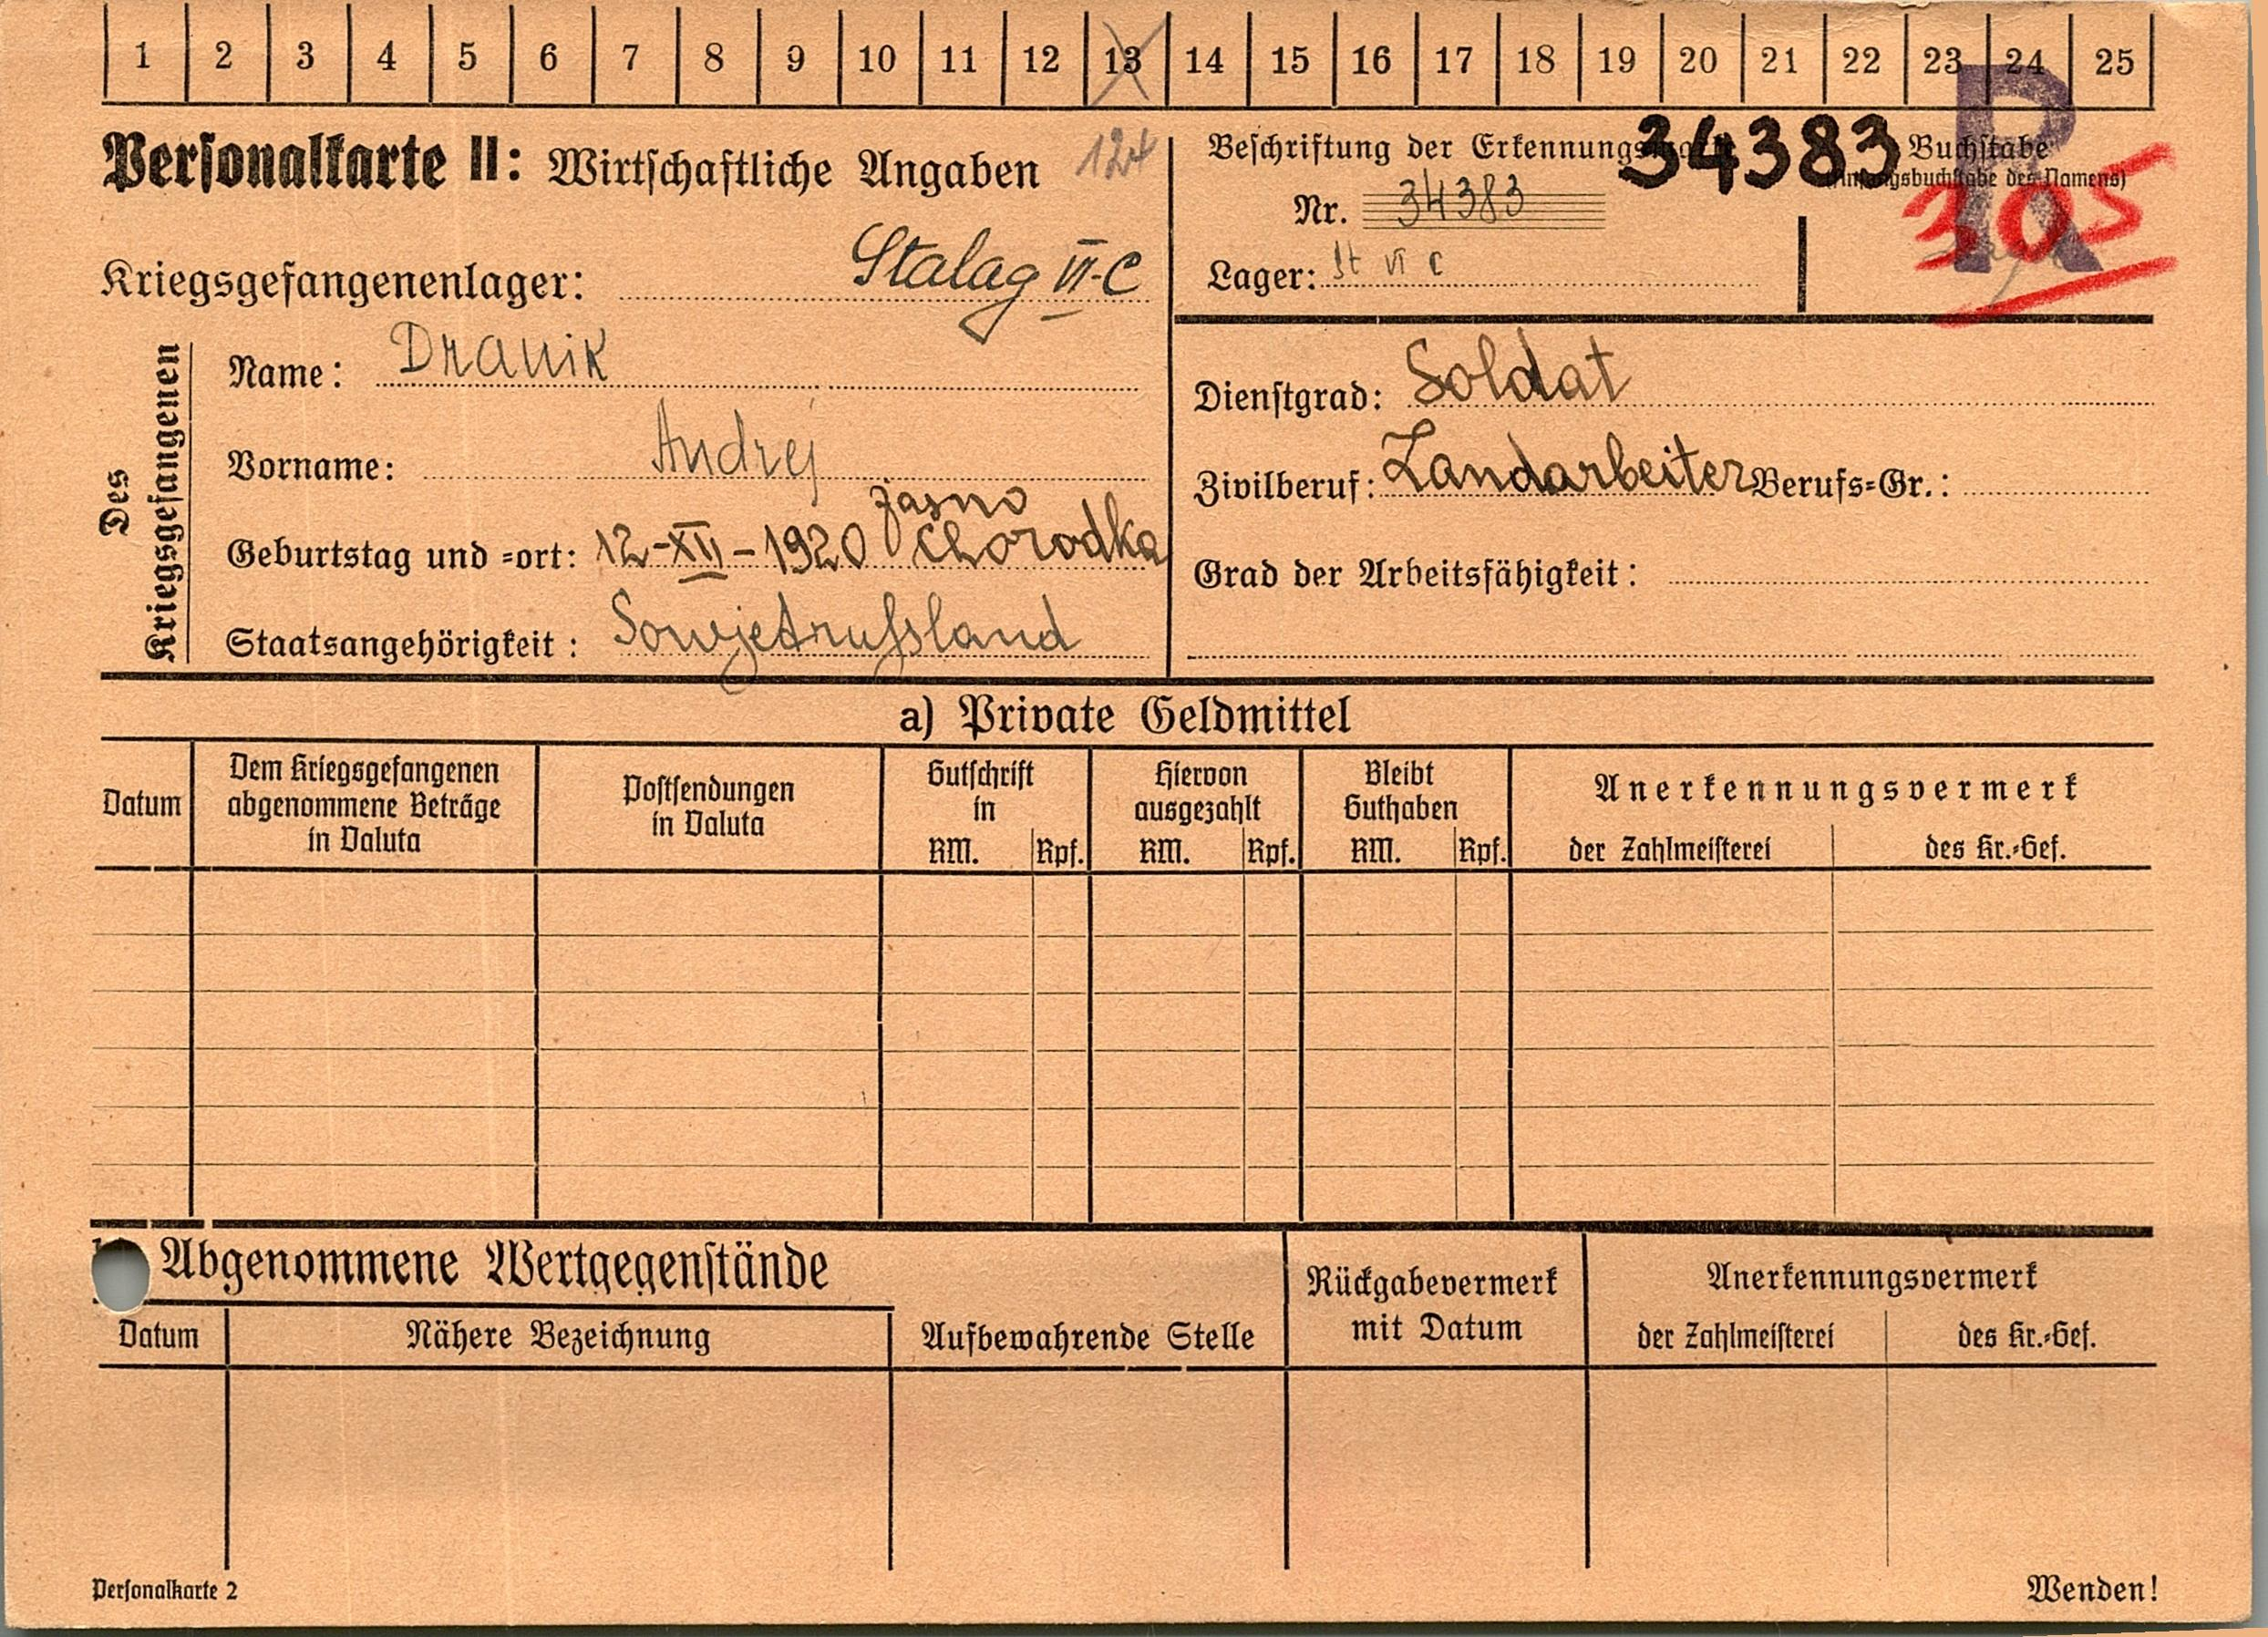 1 2 3 4 5 6 7 8 9 10 11 12 13 14 15 16 17 18 19 20 21 22 23 24 25
Personalkarte II: Wirtschaftliche Angaben
Kriegsgefangenenlager: Stalag VI-C
Des Kriegsgefangenen
Name: Dranik
Vorname: Andrej
Jasno
Geburtstag und =ort: 12-XII-1920 Chorodka
Staatsangehörigkeit: Sowjetrußland
Beschriftung der Erkennungsmarke 34383
Nr. 34383
Lager: St VI C
Buchstabe
(Anfangsbuchstabe des Namens)
R
305
Dienstgrad: Soldat
Zivilberuf: Landarbeiter Berufs=Gr.:
Grad der Arbeitsfähigkeit:
a) Private Geldmittel
Datum
Dem Kriegsgefangenen
abgenommene Beträge
in Valuta
Postsendungen
in Valuta
Gutschrift
in
RM. Rpf.
Hiervon
ausgezahlt
RM. Rpf.
Bleibt
Guthaben
RM. Rpf.
Anerkennungsvermerk
der Zahlmeisterei des Kr.=Gef.
Abgenommene Wertgegenstände
Datum
Nähere Bezeichnung
Aufbewahrende Stelle
Rückgabevermerk
mit Datum
Anerkennungsvermerk
der Zahlmeisterei des Kr.=Gef.
Personalkarte 2
Wenden!